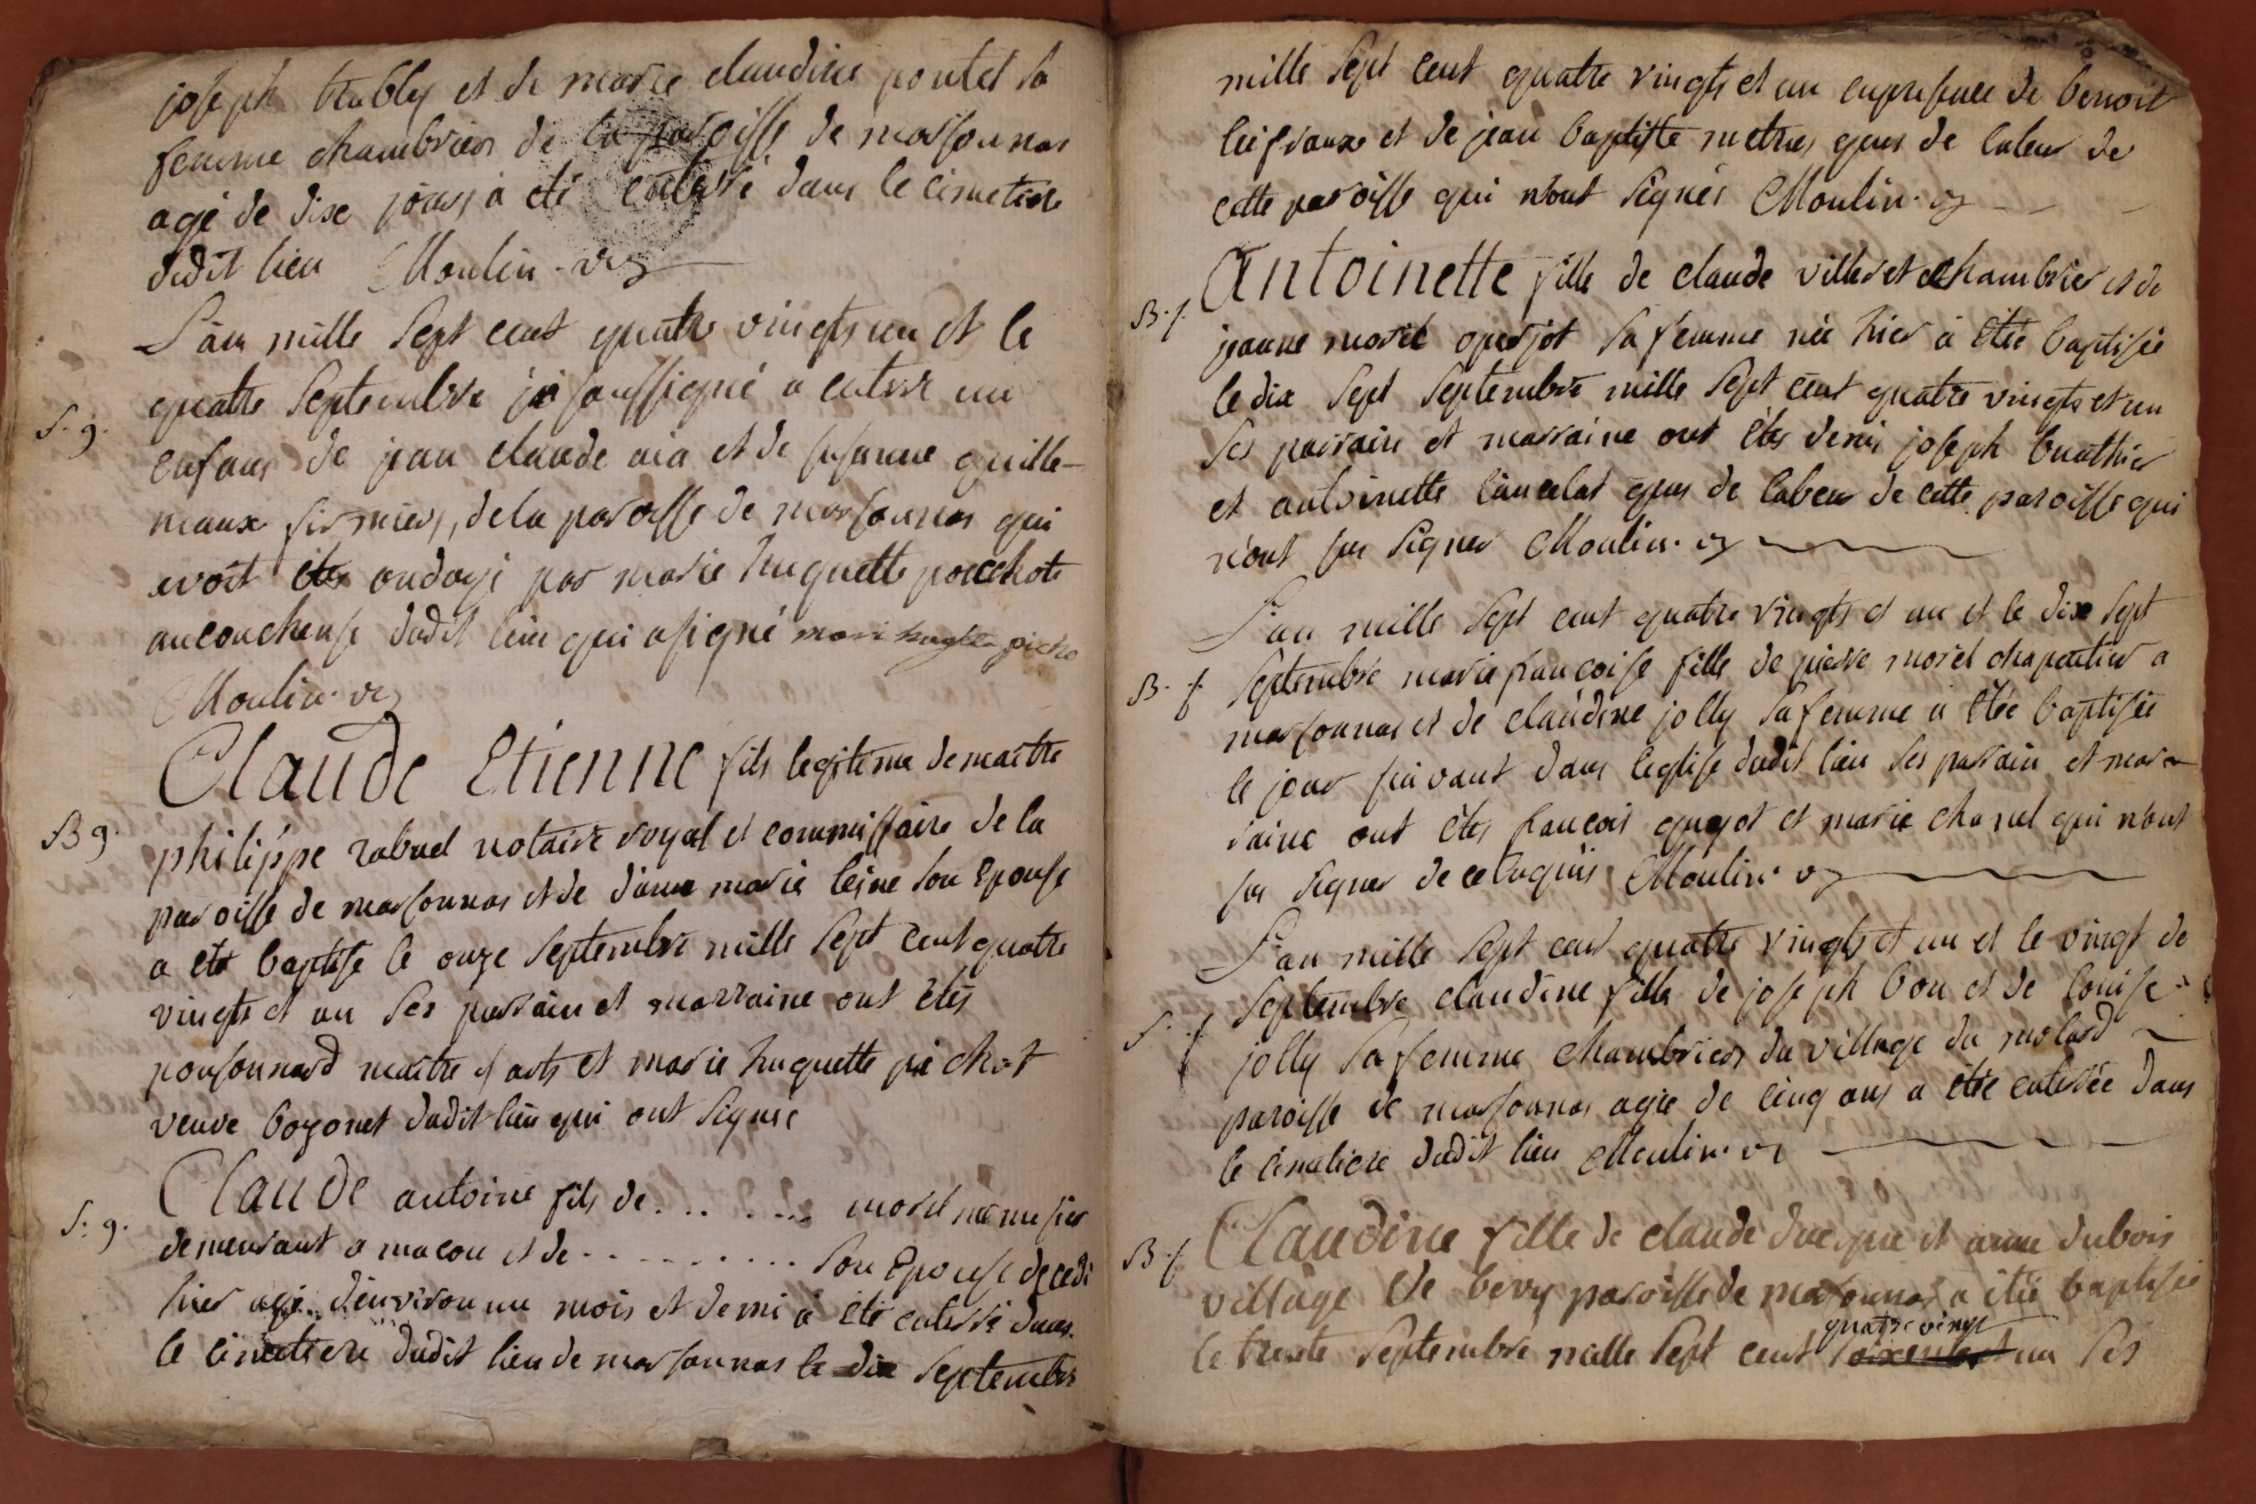 joseph trably et de marie claudine poutet sa
femme chambrier de la paroisse de marsonnas
agé de dixe jours a eté enterré dans le cimetiere
dudit lieu Moulin. vic
L'an mille sept cent quatre vingts un et le
quatre septembre je soussigné a enterre un
S. g.
enfans de jean claude via et de susanne guille-
maux firmiers, de la paroisse de marsonnas qui
avoit étes ondoyé par marie huguette pocchote
aucoucheuse dudit lieu qui a signé mari hugtte picho
Moulin. vic
Claude Etienne fils legitime de maitre
B g.
philippe rabuel notaire royal et commissaire de la
paroisse de marsonnas et de dame marie leine son epouse
a eté baptise le onze septembre mille sept cent quatre
vingts et un ses parrain et marraine ont étés
ponsonnard maitre d'arts et marie huguette pi chot
veuve boyonet dudit lieu qui ont signés
Claude antoine fils de ........ morel
S. g.
demeurant a macon et de .......... son epouse decedé
hier agé d'environ un mois et demi à été enterré dans
le cimetiere dudit lieu de marsonnas le dix septembre
mille sept cent quatre vingts et un en presence de benoit
et de jean baptiste metras gens de labeur de
cette paroisse qui n'ont signés Moulin. vic
Antoinette fille de claude villeret chambrier et de
B. f.
jeanne morel operjot sa femme née hier à étée baptisée
le dix sept septembre mille sept cent quatre vingts et un
ses parrain et marraine ont étés denis joseph buathier
et antoinette lancelat gens de labeur de cette paroisse qui
n'ont su signer Moulin. vic
L'an mille sept cent quatre vingts et un et le dixe sept
B. f.
septembre marie françoise fille de pierre morel chapentier a
marsonnas et de claudine jolly sa femme a étée baptisée
le jour suivant dans l'eglise dudit lieu ses parrain et mar
raine ont étés francois guyot et marie chanel qui n'ont
su signer de ce enquis Moulin. vic
L'an mille sept cent quatre vingts et un et le vingt de
septembre claudine fille de joseph bon et de louise
S. f.
jolly sa femme chambriers du village du molard
paroisse de marsonnas agée de cinq ans a étée enterrée dans
le cimetiere dudit lieu Moulin. vic
Claudine fille de claude ducque et anne dubois
B. f.
village de bevy paroisse de marsonnas a étée baptisée
quatre vingt
le trente septembre mille sept cent soixente et un ses